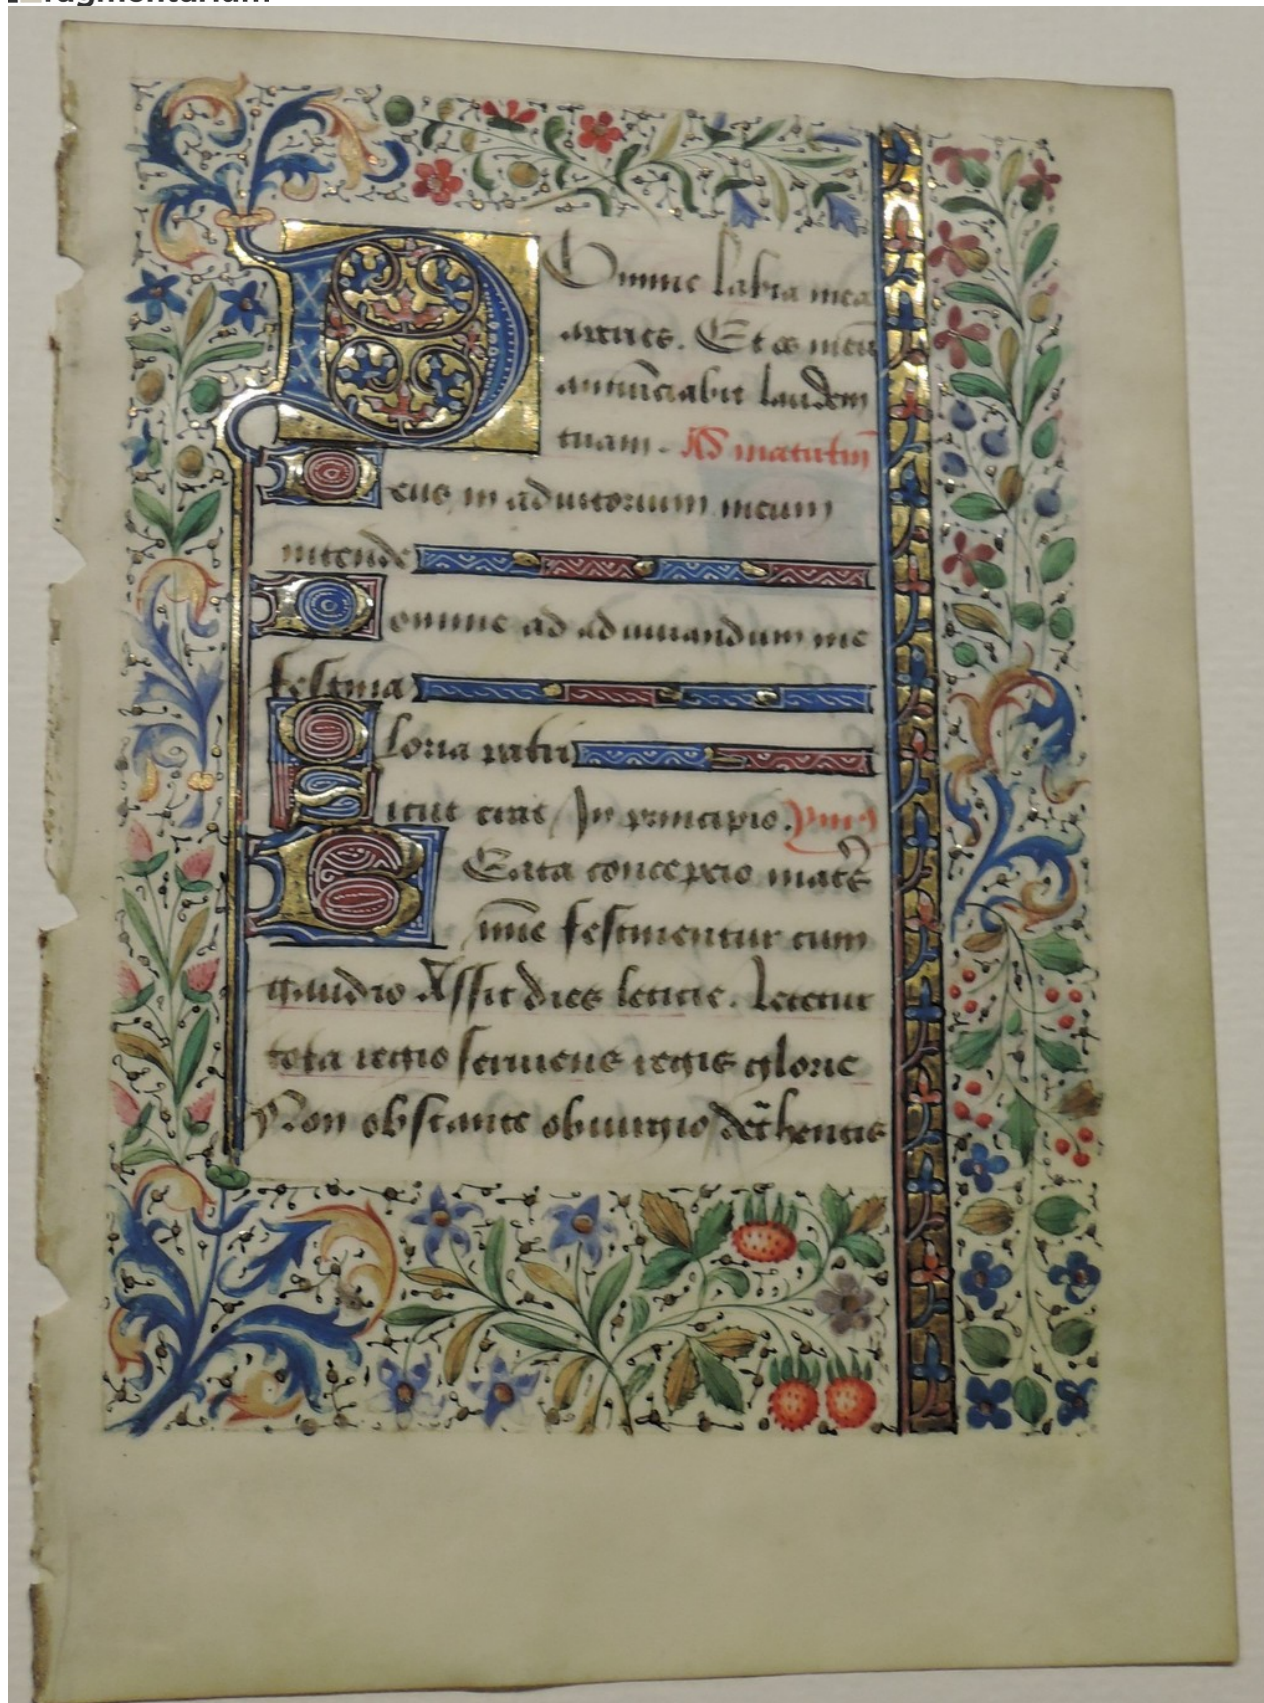 Fragmentarium
Domine labia mea
aperies. Et os meū
annūciabit laudem
tuam. Ad matutin̄
Deus in adiutorium meum
intende
Domine ad adiuuandum me
festina
Gloria patri
Sicut erat In principio.
Beata concepcio mat̄s
festinentur cum
gaudio Assit dies leticie. Letetur
tota regio seruiens regis glorie
Non obstante obiurgio